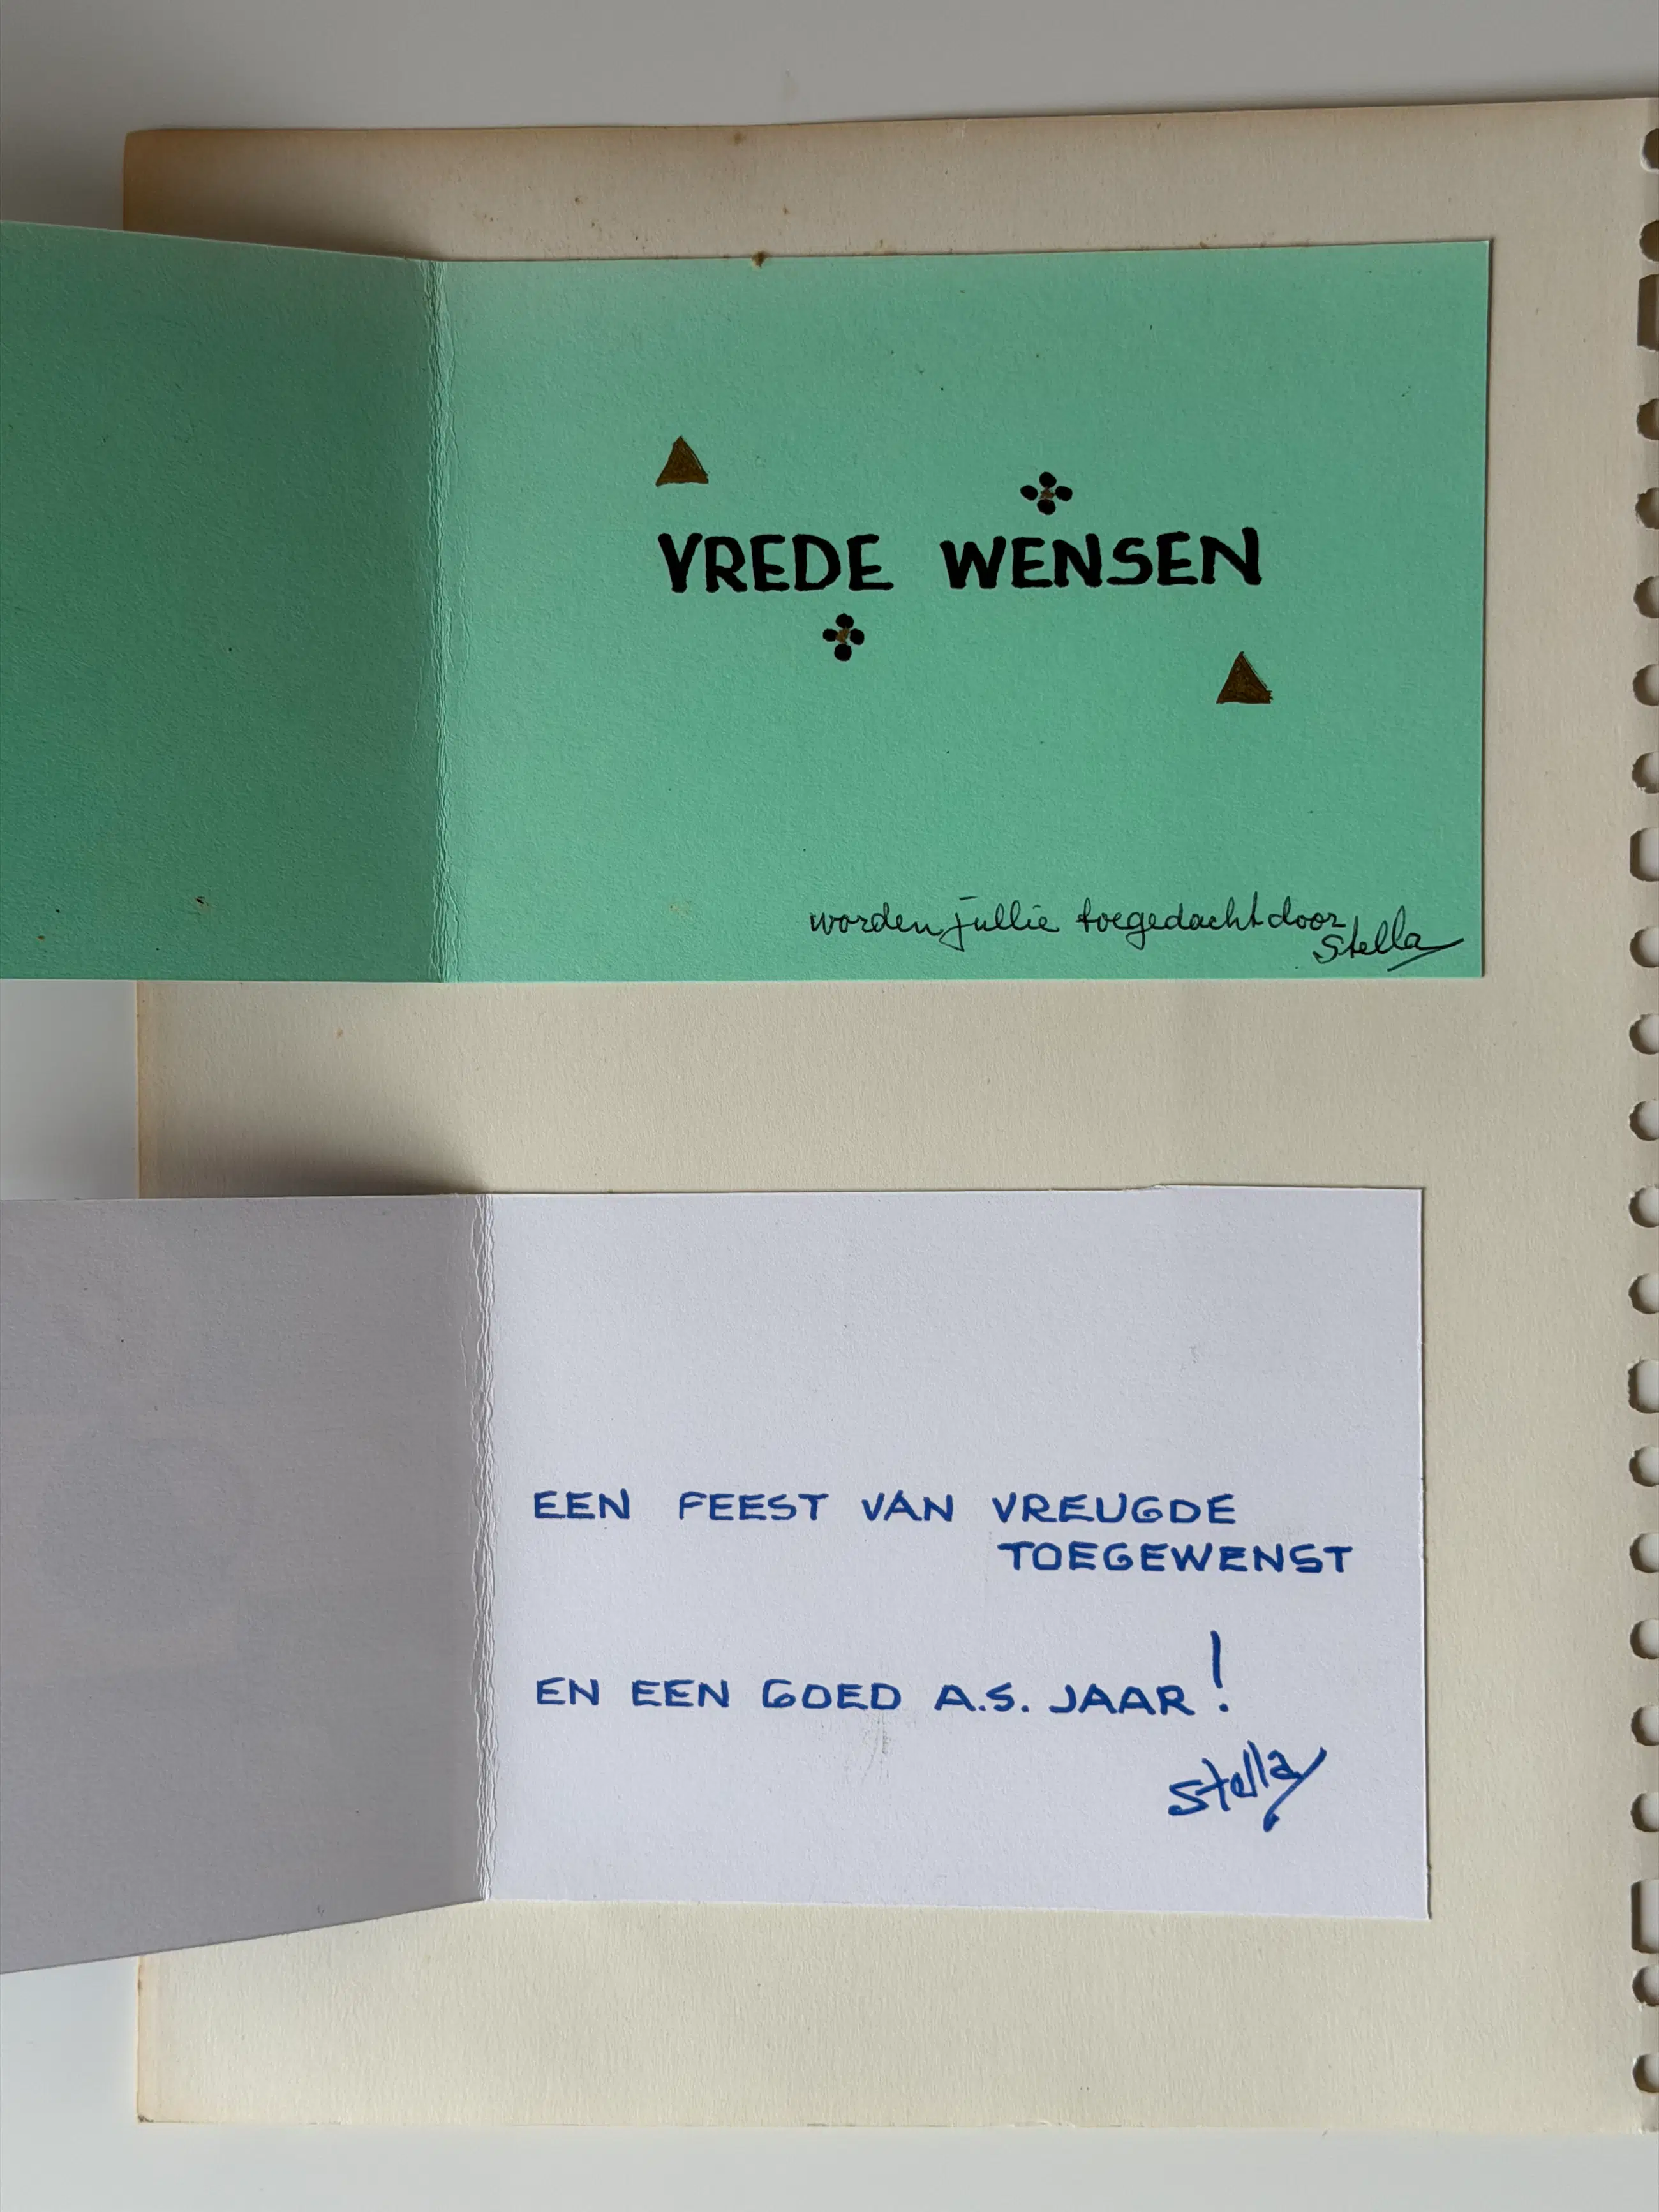 VREDE WENSEN
worden jullie toegedacht door
Stella
EEN FEEST VAN VREUGDE
TOEGEWENST
EN EEN GOED A.S. JAAR!
Stella